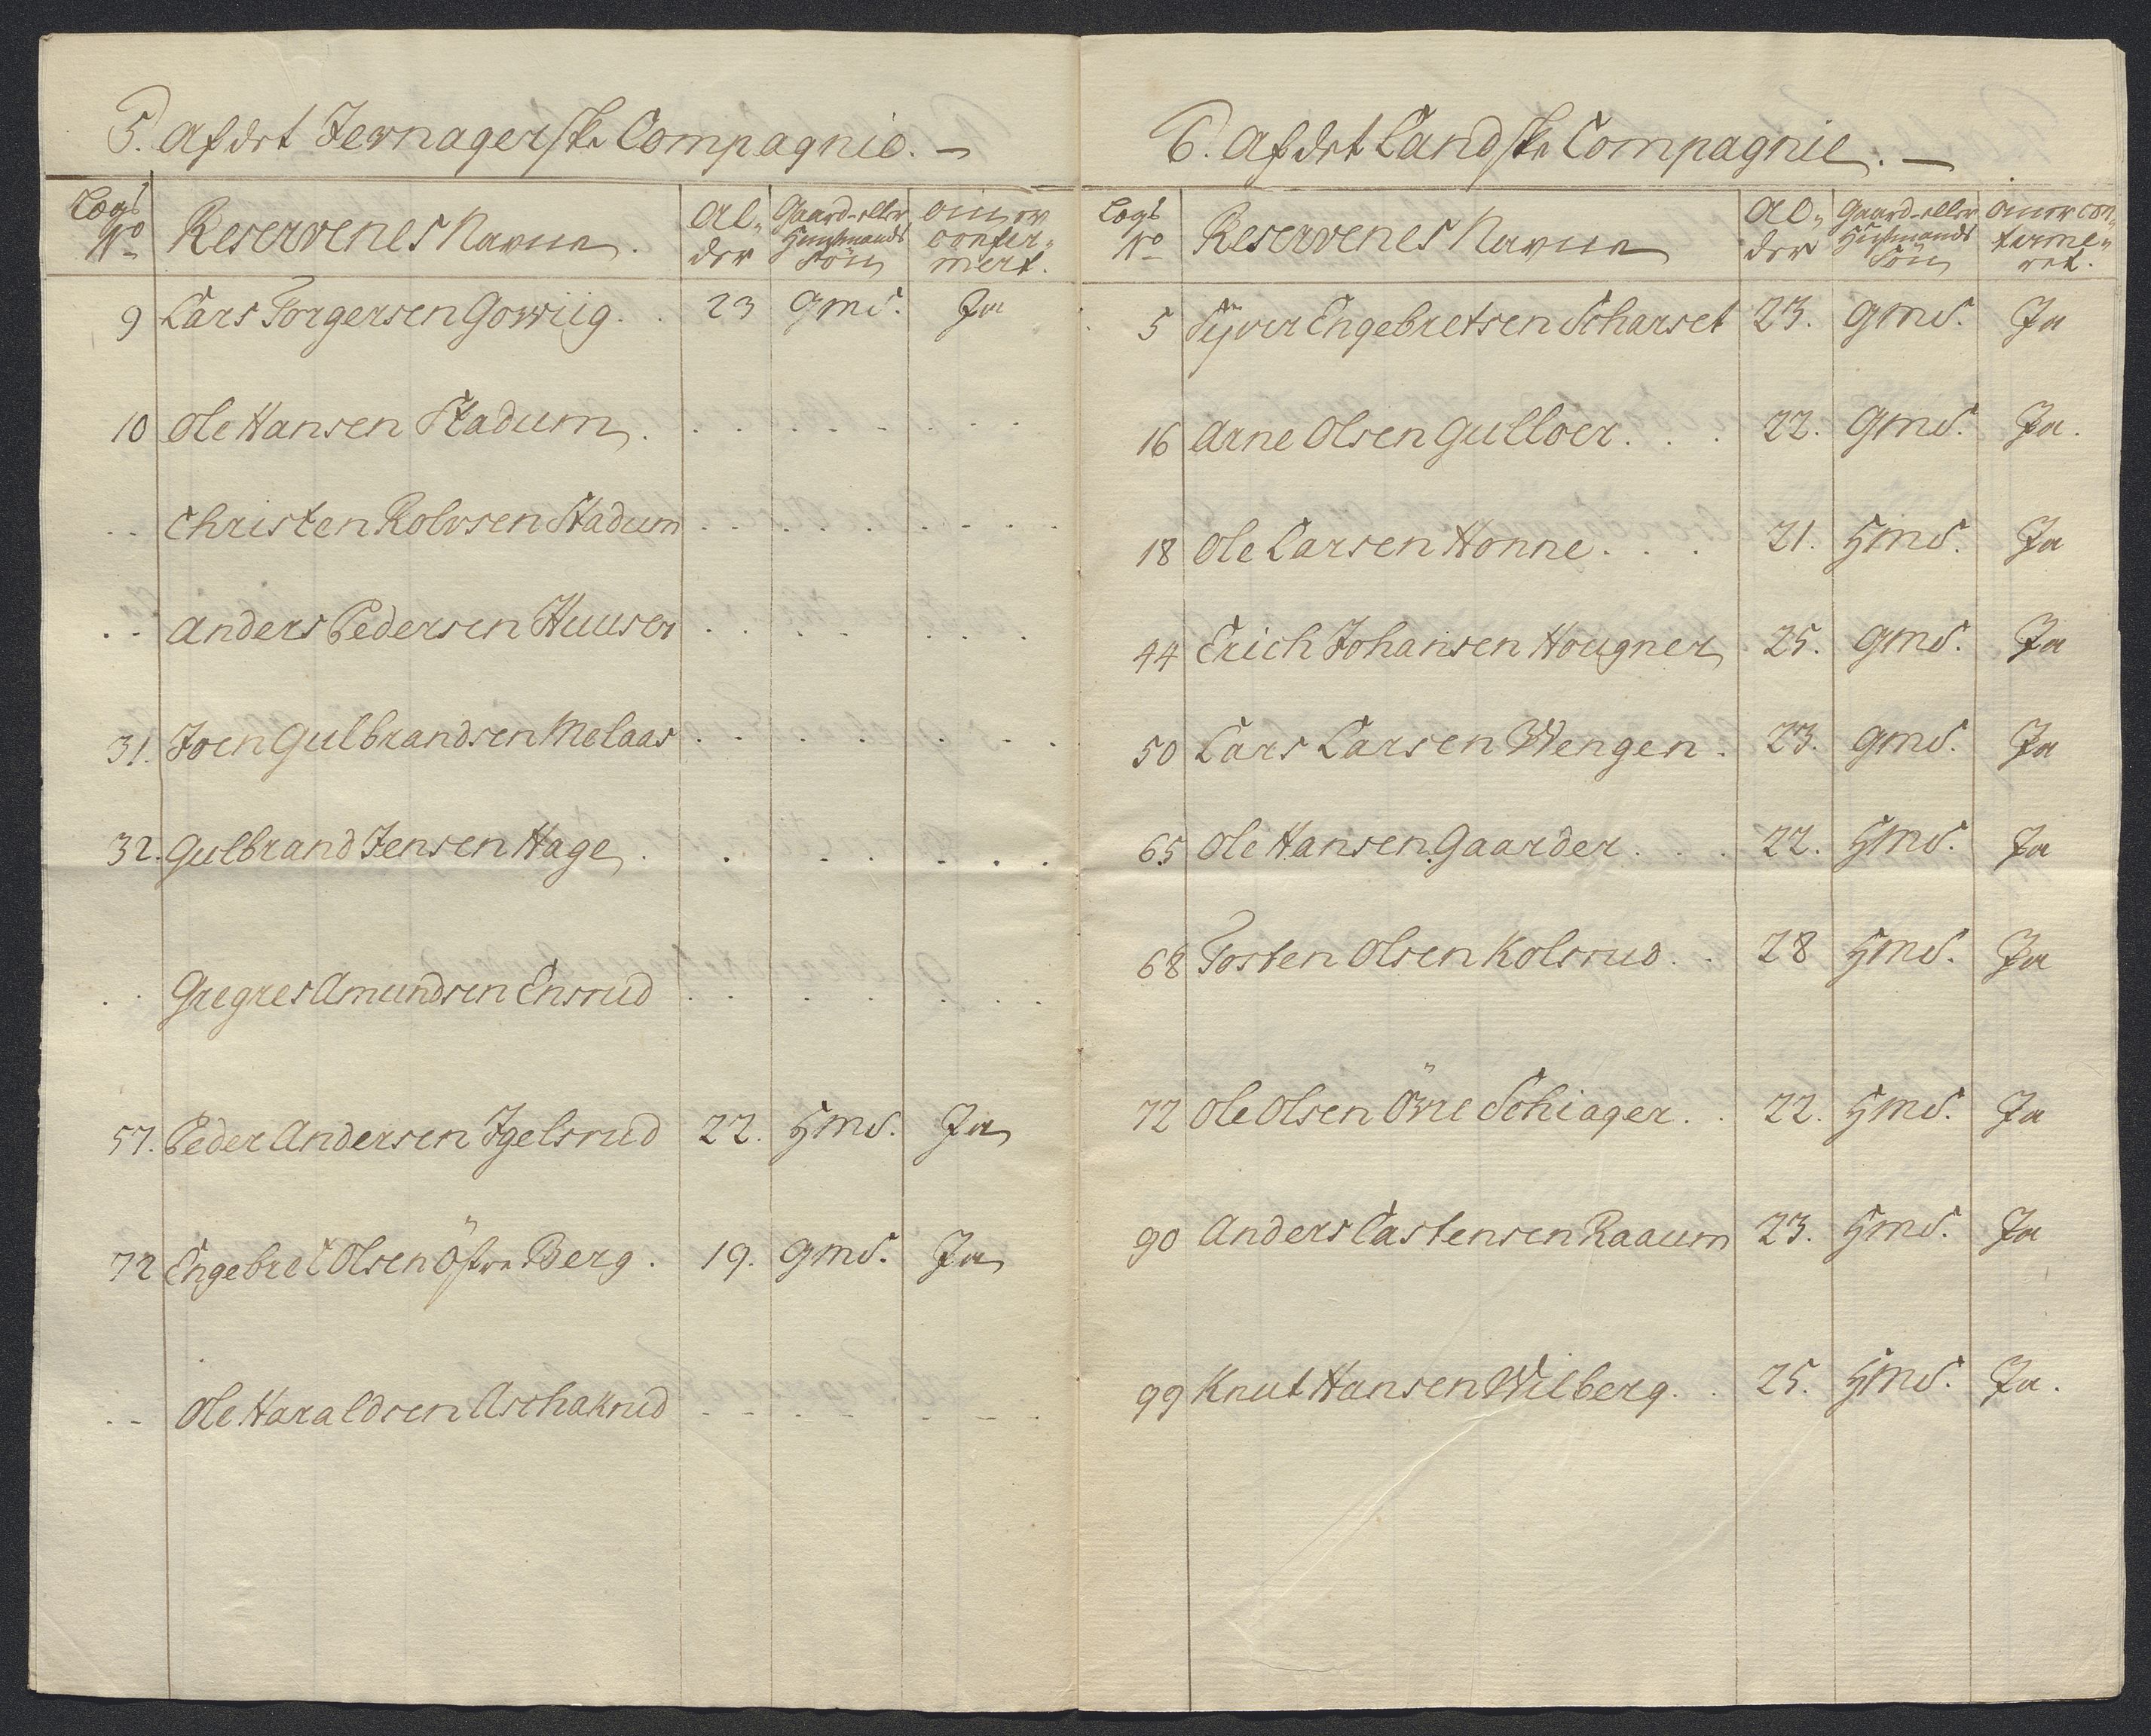 5. Af det Jevnagerske Compagnie. –
Logs No Reservenes Navne. Al„der Gaard- eller Huusmands Sön om er confir„mert.
9 Lars Torgersen Gorviig. . 23 Gmds. Ja
10 Ole Hansen Stadum. . . . . . . . .
. . Christen Rolvsen Stadum . . . . . . . .
. . Anders Pedersen Huuser . . . . . . .
31. Joen Gulbrandsen Melaas . . . . . . . .
32. Gulbrand Jensen Hage. . . . . . . .
. . Gregres Amundsen Ensrud . . . . . . . .
57. Peder Andersen Igelsrud 22. Hmds. Ja
72 Engebret Olsen Östre Berg. 19. Gmds. Ja
. . Ole Haraldsen Aschakrud - - - - - - - -
6. Af det Landske Compagnie. –
Logs No Reservenes Navne Al„der Gaard- eller Huusmands Sön om er con„firme„ret.
5 Syver Engebretsen Scharset 23. Gmds. Ja
16 Arne Olsen Gulloer. . . 22. Gmds. Ja.
18 Ole Larsen Honne. . . 21. Hmds. Ja
44 Erich Johansen Hougner 25. Gmds. Ja
50 Lars Larsen Wengen. 23. Gmds. Ja
65 Ole Hansen Gaarder. . . 22. Hmds. Ja
68 Tosten Olsen Kolsrud. . 28 Hmds. Ja
72 Ole Olsen Övre Schiager. . 22. Hmds. Ja
90 Anders Castensen Raaum 23. Hmds. Ja
99 Knut Hansen Wilberg. . 25. Hmds. Ja.